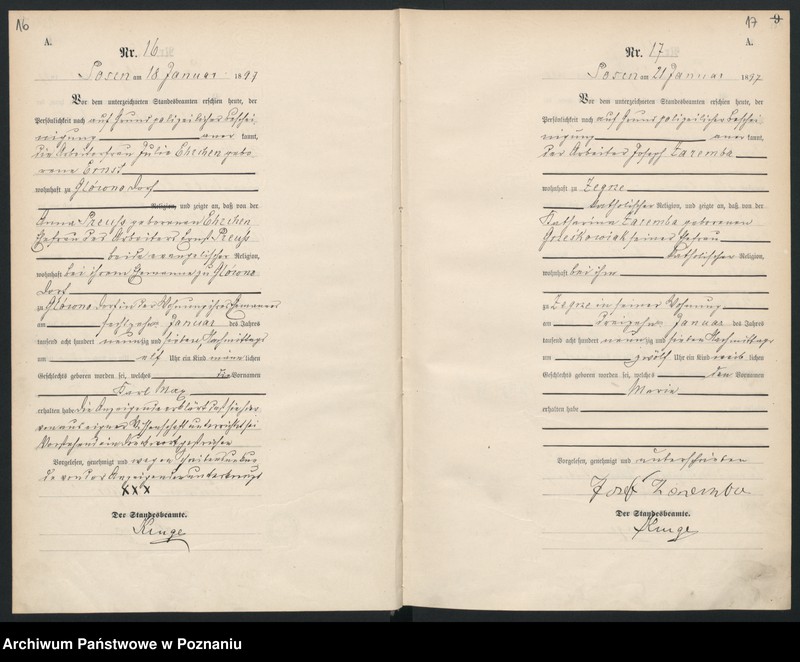 16
A.
Nr. 16
Posen am 18 Januar 1897
Vor dem unterzeichneten Standesbeamten erschien heute, der
Persönlichkeit nach auf Grund polizeilicher Beschei-
nigung anerkannt,
die Arbeiterfrau Julie Ehrchen gebo-
rene Ernst
wohnhaft zu Glówno Dorf
Religion, und zeigte an, daß von der
Anna Preuß geborenen Ehrchen
Ehefrau des Arbeiters Ernst Preuß
beide evangelischer Religion,
wohnhaft bei ihrem Ehemanne zu Glówno
Dorf
zu Glówno Dorf in der Wohnung ihres Ehemannes
am sechszehn Januar des Jahres
tausend acht hundert neunzig und sieben Nachmittags
um elf Uhr ein Kind männlichen
Geschlechts geboren worden sei, welches die Vornamen
Karl Max
erhalten habe die Anzeigende erklärt daß sie hier-
von aus eigener Wissenschaft unterrichtet sei
Vorstehend ein Druckwort gestrichen
Vorgelesen, genehmigt und wegen Schreibensunkun-
de von der Anzeigenden unterkreuzt
xxx
Der Standesbeamte.
Kluge
17 9
A.
Nr. 17
Posen am 21 Januar 1897
Vor dem unterzeichneten Standesbeamten erschien heute, der
Persönlichkeit nach auf Grund polizeilicher Beschei-
nigung anerkannt,
der Arbeiter Joseph Zaremba
wohnhaft zu Zegrze
katholischer Religion, und zeigte an, daß von der
Katharina Zaremba geborenen
seiner Ehefrau
katholischer Religion,
wohnhaft bei ihm
zu Zegrze in seiner Wohnung
am dreizehn Januar des Jahres
tausend acht hundert neunzig und sieben Nachmittags
um zwölf Uhr ein Kind weiblichen
Geschlechts geboren worden sei, welches den Vornamen
Maria
erhalten habe
Vorgelesen, genehmigt und unterschrieben
Josef Zaremba
Der Standesbeamte.
Kluge
Archiwum Państwowe w Poznaniu